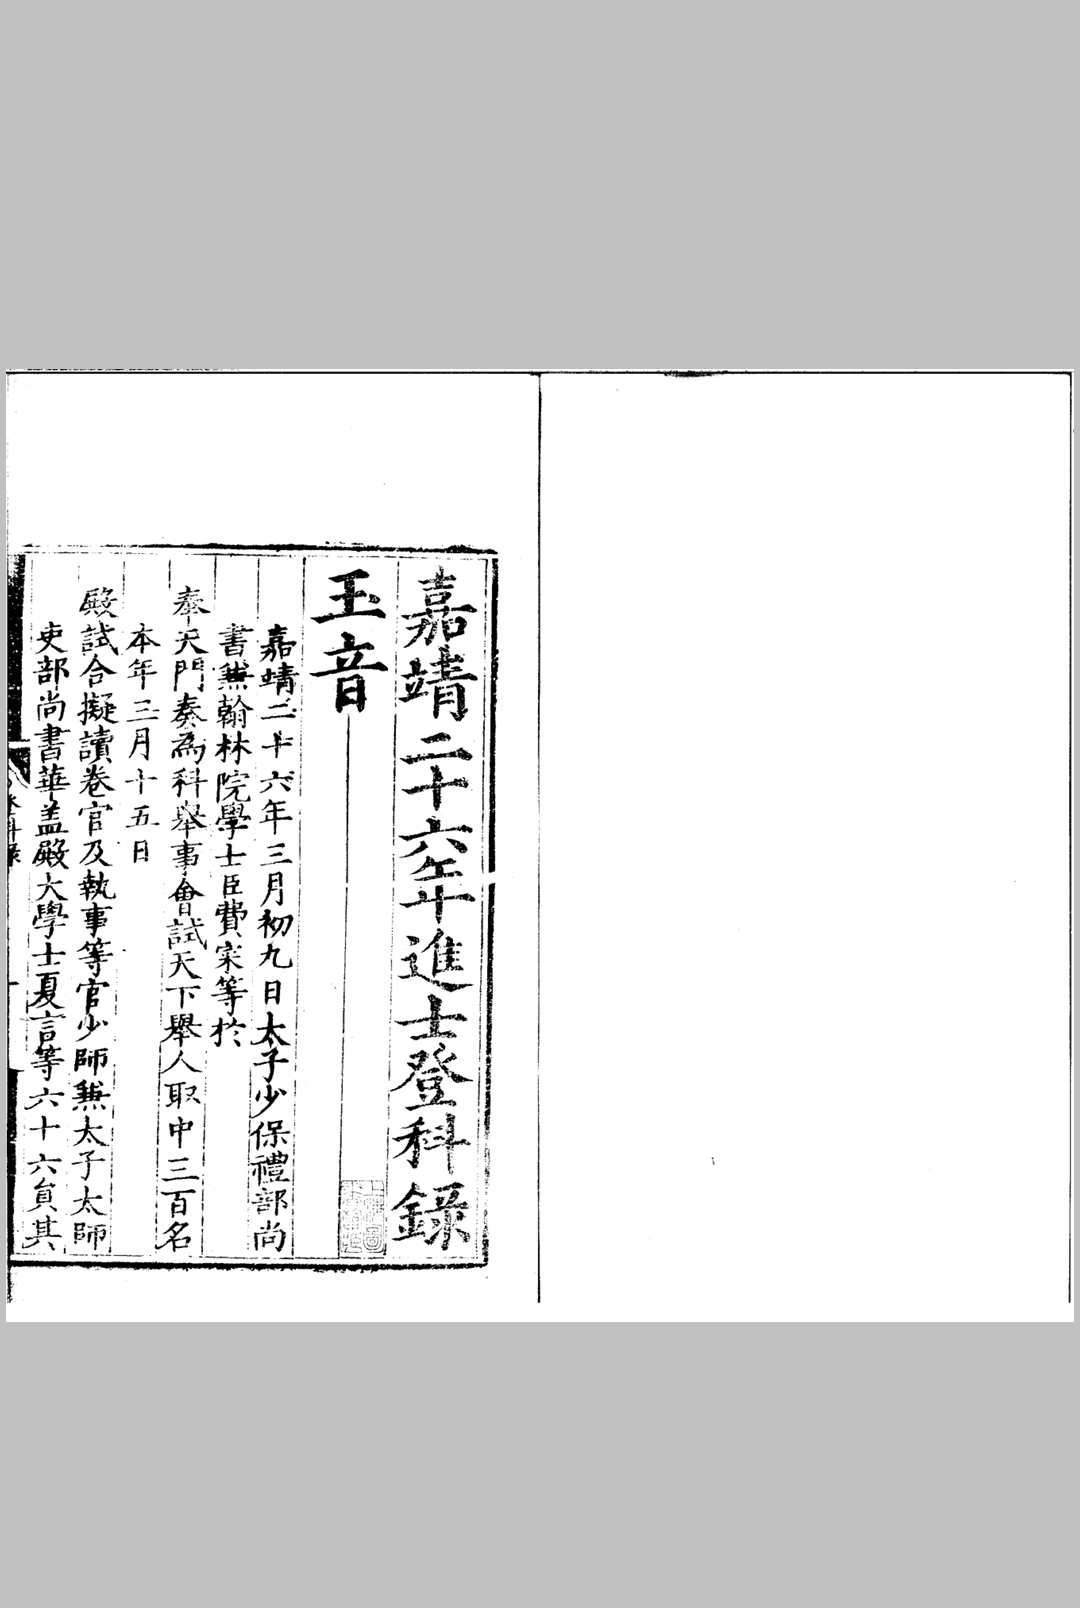 嘉靖二十六年進士登科錄
玉音
嘉靖二十六年三月初九日太子少保禮部尚
書兼翰林院學士臣費寀等於
奉天門奏為科舉事會試天下舉人取中三百名
本年三月十五日
殿試合擬讀卷官及執事等官少師兼太子太師
吏部尚書華盖殿大學士夏言等六十六員其